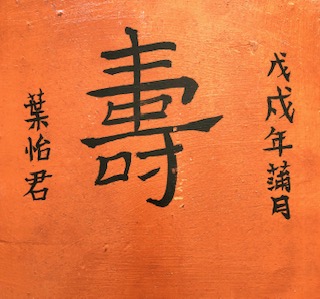 戊戌年蒲月
壽
葉怡君